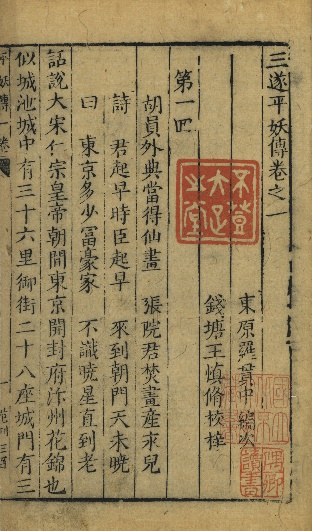 三遂平妖傳卷之一
東原羅貫中編次
錢塘王慎脩校梓
第一回
胡員外典當得仙畫 張院君焚畫產永兒
詩 君起早時臣起早 來到朝門天未曉
曰 東京多少冨豪家 不識曉星直到老
話說大宋仁宗皇帝朝間東京開封府汴州花錦也
似城池城中有三十六里御街二十八座城門有三
平妖傳 卷
不登
大
之堂